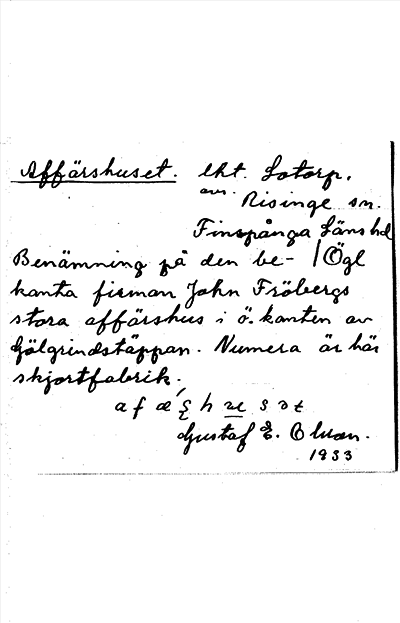 Affärshuset. lht. Lotorp.
avs. Risinge sn.
Finspånga läns hd
Benämning på den be- / Ögl
kanta firman John Fröbergs
stora affärshus i ö. kanten av
Gölgrindstäppan. Numera är här
skjortfabrik.
Gustaf E. Olson.
1933